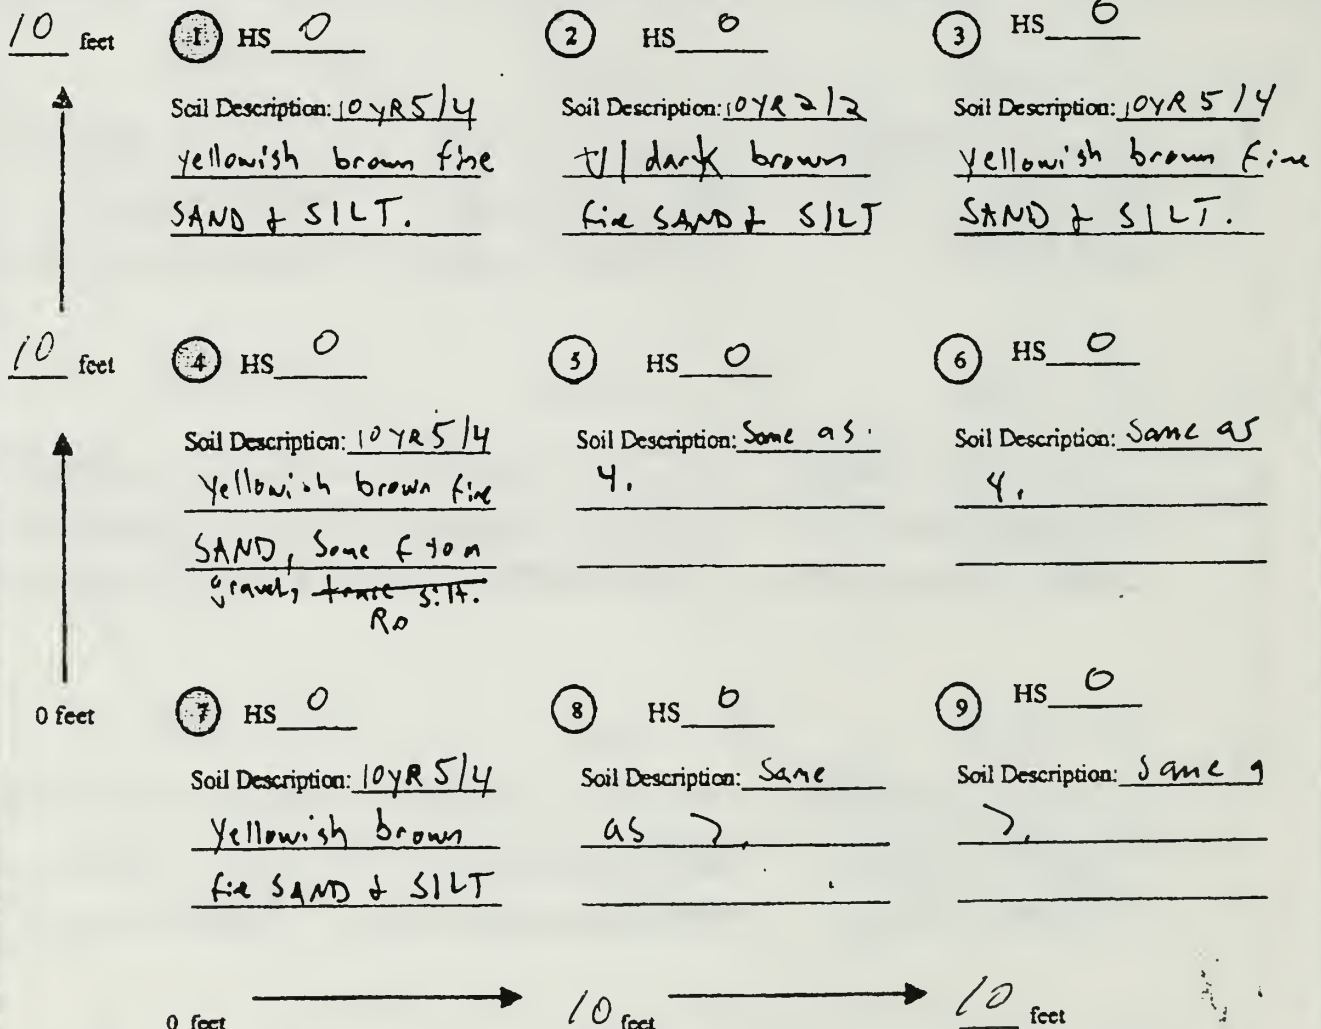 10 feet
1 HS 0
2 HS 0
3 HS 0
Soil Description: 10YR 5/4
yellowish brown fine
SAND & SILT.
Soil Description: 10YR 2/2
dark brown
fine SAND & SILT
Soil Description: 10YR 5/4
yellowish brown fine
SAND & SILT.
10 feet
4 HS 0
5 HS 0
6 HS 0
Soil Description: 10YR 5/4
Yellowish brown fine
SAND, Some f to m
gravel, trace silt.
Soil Description: Same as
4.
Soil Description: Same as
4.
0 feet
7 HS 0
8 HS 0
9 HS 0
Soil Description: 10YR 5/4
Yellowish brown
fine SAND & SILT
Soil Description: Same
as 7.
Soil Description: Same
7.
0 feet
10 feet
10 feet